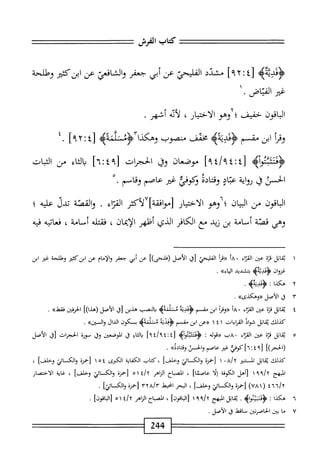 كتاب الفرش
﴿فَدِيَّةٌ﴾ [٩٢:٤] مشدّد الفليحيّ عن أبي جعفر والشافعيّ عن ابن كثير وطلحة
غير الفيّاض .١
الباقون خفيف ؛٢ وهو الاختيار ، لأنّه أشهر .
وقرأ ابن مقسم ﴿فَدِيَةً﴾ مخفّف منصوب وهكذا٣ ﴿مُسَلَّمَةً﴾ [٩٢:٤] .٤
﴿فَتَثَبَّتُوا﴾ [٩٤/٩٤:٤] موضعان وفي الحجرات [٦:٤٩] بالثاء من الثبات
الحسنُ في رواية عبّادٍ وقتادةُ وكوفيٌّ غير عاصم وقاسم .٥
الباقون من البيان ؛٦ وهو الاختيار [موافقة]٧ لأكثر القرّاء . والقصّة تدلّ عليه ؛
وهي قصّة أسامة بن زيد مع الكافر الذي أظهر الإيمان ، فقتله أسامة ، فعاتبه فيه
١ يُقابل قرّة عين القرّاء ٨٠أ «قرأ الفليحيّ [في الأصل (فلحي)] عن أبي جعفر والإمام عن ابن كثير وطلحة غير ابن
غزوان ﴿فَدِيَّةٌ﴾ بتشديد الياء» .
٢ هكذا : ﴿فَدِيَةٌ﴾ .
٣ في الأصل «وهكذى» .
٤ يُقابل قرّة عين القرّاء ٨٠أ «وقرأ ابن مقسم ﴿فَدِيَةً مُسَلَّمَةً﴾ بالنصب هذين [في الأصل (هذا)] الحرفين فقط» .
كذلك يُقابل شواذّ القراءات ١٤١ «عن ابن مقسم ﴿فَدْيَةً مُسْلَمَةً﴾ بسكون الدال والسين» .
٥ يُقابل قرّة عين القرّاء ٨٠ب «قوله : ﴿فَتَثَبَّتُوا﴾ [٩٤/٩٤:٤] بالثاء في الموضعين وفي سورة الحجرات [في الأصل
(الحجر)] [٦:٤٩] كوفيٌّ غير عاصم والحسنُ وقتادةُ» .
كذلك يُقابل المستنير ١٠٨/٢ [حمزة والكسائيّ وخلف] ، كتاب الكفاية الكبرى ١٥٤ [حمزة والكسائيّ وخلف] ،
المبهج ١٩٩/٢ [أهل الكوفة إلّا عاصمًا] ، المصباح الزاهر ٥١٤/٢ [حمزة والكسائيّ وخلف] ، غاية الاختصار
٤٦٦/٢ (٧٨١) [حمزة والكسائيّ وخلف] ، البحر المحيط ٣٢٨/٣ [حمزة والكسائيّ] .
٦ هكذا : ﴿فَتَبَيَّنُوا﴾ . يُقابل المبهج ١٩٩/٢ [الباقون] ، المصباح الزاهر ٥١٤/٢ [الباقون] .
٧ ما بين الحاصرتين ساقط في الأصل .
244